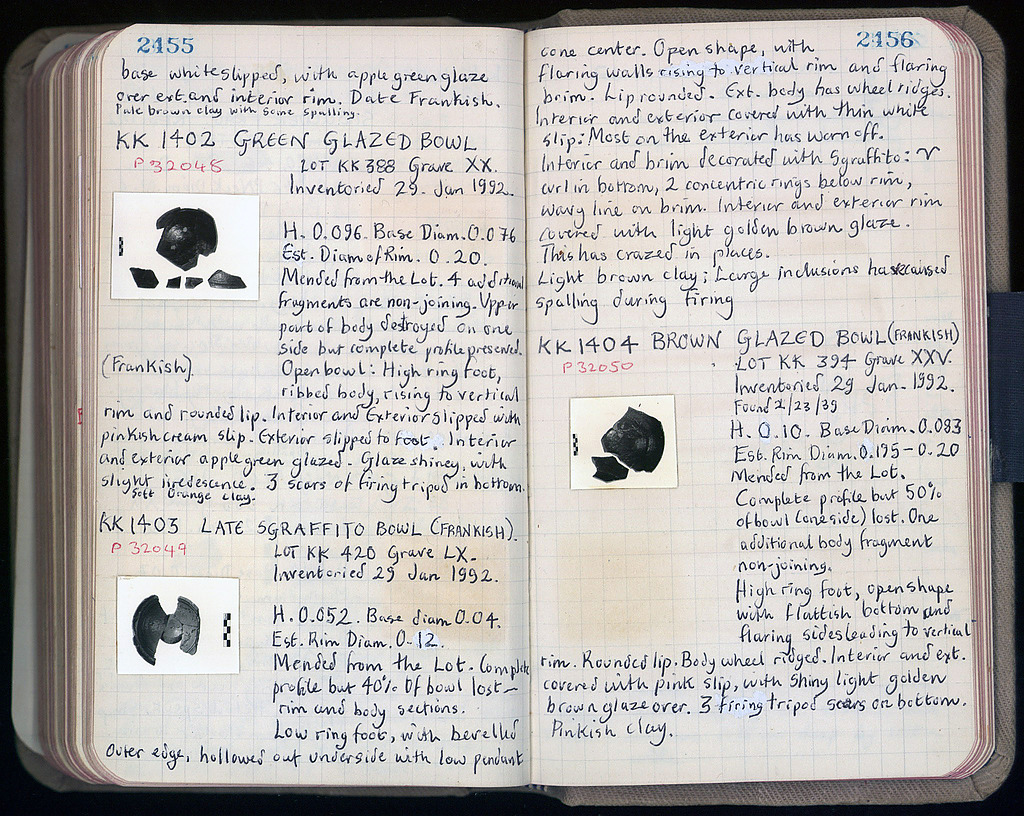 2455
base whiteslipped, with apple green glaze
over ext. and interior rim. Date Frankish.
Pale brown clay with some spalling.
KK 1402 GREEN GLAZED BOWL
P 32048
LOT KK 388 Grave XX.
Inventoried 29. Jan 1992.
H. 0.096. Base Diam. 0.076
Est. Diam of Rim. 0.20.
Mended from the Lot. 4 additional
fragments are non-joining. Upper
part of body destroyed on one
side but complete profile preserved.
(Frankish).
Open bowl: High ring foot,
ribbed body, rising to vertical
rim and rounded lip. Interior and Exterior slipped with
pinkish cream slip. Exterior slipped to foot. Interior
and exterior apple green glazed. Glaze shiney, with
slight iredescence. 3 scars of firing tripod in bottom.
Soft Orange clay.
KK 1403 LATE SGRAFFITO BOWL (FRANKISH).
P 32049
LOT KK 420 Grave LX.
Inventoried 29 Jan 1992.
H. 0.052. Base diam 0.04.
Est. Rim Diam. 0.12.
Mended from the Lot. Complete
profile but 40% of bowl lost—
rim and body sections.
Low ring foot, with bevelled
outer edge, hollowed out underside with low pendant
2456
cone center. Open shape, with
flaring walls rising to vertical rim and flaring
brim. Lip rounded. Ext. body has wheel ridges.
Interior and exterior covered with thin white
slip: Most on the exterior has worn off.
Interior and brim decorated with Sgraffito:
curl in bottom, 2 concentric rings below rim,
wavy line on brim. Interior and exterior rim
covered with light golden brown glaze.
This has crazed in places.
Light brown clay; Large inclusions has caused
spalling during firing
KK 1404 BROWN GLAZED BOWL (FRANKISH)
P 32050
LOT KK 394 Grave XXV.
Inventoried 29 Jan. 1992.
Found /23/39
H. 0.10. Base Diam. 0.083
Est. Rim Diam. 0.195-0.20
Mended from the Lot.
Complete profile but 50%
of bowl (one side) lost. One
additional body fragment
non-joining.
High ring foot, open shape
with flattish bottom and
flaring sides leading to vertical
rim. Rounded lip. Body wheel ridged. Interior and ext.
covered with pink slip, with shiny light golden
brown glaze over. 3 firing tripod scars on bottom.
Pinkish clay.